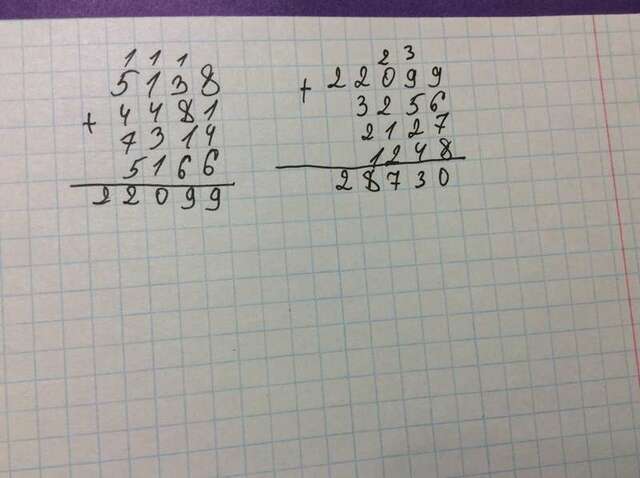 1 1 1
5138
+ 4481
7314
5166
22099
2 3
+ 22099
3256
2127
1248
28730